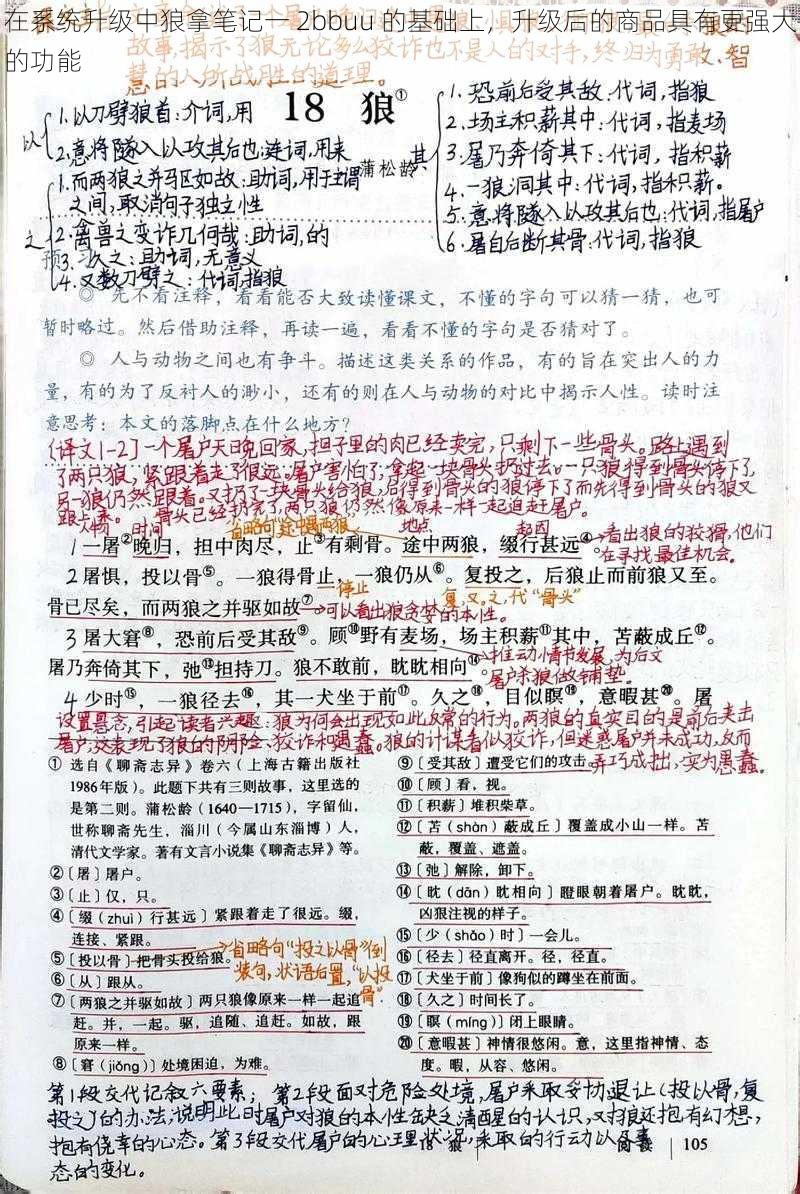 在系统升级中狼拿笔记一 2bbuu 的基础上，升级后的商品具有更强大
的功能
故事,揭示了狼无论多么狡诈也不是人的对手,终归为勇敢、智
慧的人所战胜的道理。
18 狼①
蒲松龄
以
1.以刀劈狼首:介词,用
2.意将隧入以攻其后也:连词,用来
之
1.而两狼之并驱如故:助词,用于主谓
之间,取消句子独立性
2.禽兽之变诈几何哉:助词,的
3.久之:助词,无意义
4.又数刀毙之:代词,指狼
其
1.恐前后受其敌:代词,指狼
2.场主积薪其中:代词,指麦场
3.屠乃奔倚其下:代词,指积薪
4.一狼洞其中:代词,指积薪。
5.意将隧入以攻其后也:代词,指屠户
6.屠自后断其骨:代词,指狼
预习
◎ 先不看注释，看看能否大致读懂课文，不懂的字句可以猜一猜，也可
暂时略过。然后借助注释，再读一遍，看看不懂的字句是否猜对了。
◎ 人与动物之间也有争斗。描述这类关系的作品，有的旨在突出人的力
量，有的为了反衬人的渺小，还有的则在人与动物的对比中揭示人性。读时注
意思考：本文的落脚点在什么地方？
[译文1-2]一个屠户天晚回家,担子里的肉已经卖完,只剩下一些骨头。路上遇到
了两只狼,紧跟着走了很远。屠户害怕了,拿起一块骨头扔过去。一只狼得到骨头停下了,
另一狼仍然跟着。又扔了一块骨头给狼,后得到骨头的狼停下了而先得到骨头的狼又
跟上来。骨头已经扔完了,两只狼仍然像原来一样一起追赶屠户。
时间 省略句"途中遇两狼" 地点 起因
1一屠②晚归，担中肉尽，止③有剩骨。途中两狼，缀行甚远④。
看出狼的狡猾,他们
在寻找最佳机会。
2屠惧，投以骨⑤。一狼得骨止，一狼仍从⑥。复投之，后狼止而前狼又至。
停止
复,又。之,代"骨头"
骨已尽矣，而两狼之并驱如故⑦。
可以看出狼贪婪的本性。
3屠大窘⑧，恐前后受其敌⑨。顾⑩野有麦场，场主积薪⑪其中，苫蔽成丘⑫。
屠乃奔倚其下，弛⑬担持刀。狼不敢前，眈眈相向⑭。
推动情节发展,为后文
屠户杀狼做铺垫。
4少时⑮，一狼径去⑯，其一犬坐于前⑰。久之⑱，目似瞑⑲，意暇甚⑳。屠
设置悬念,引起读者兴趣:狼为何会出现如此反常的行为。两狼的真实目的是前后夹击
屠户,这表现了狼的阴险、狡诈和愚蠢。狼的计谋看似狡诈,但迷惑屠户并未成功,反而
弄巧成拙,实为愚蠢。
① 选自《聊斋志异》卷六（上海古籍出版社
1986年版）。此题下共有三则故事，这里选的
是第二则。蒲松龄（1640—1715），字留仙，
世称聊斋先生，淄川（今属山东淄博）人，
清代文学家。著有文言小说集《聊斋志异》等。
②〔屠〕屠户。
③〔止〕仅，只。
④〔缀（zhuì）行甚远〕紧跟着走了很远。缀，
连接、紧跟。
⑤〔投以骨〕把骨头投给狼。
省略句"投之以骨"倒
装句,状语后置,"以投
骨"
⑥〔从〕跟从。
⑦〔两狼之并驱如故〕两只狼像原来一样一起追
赶。并，一起。驱，追随、追赶。如故，跟
原来一样。
⑧〔窘（jiǒng）〕处境困迫，为难。
⑨〔受其敌〕遭受它们的攻击。
⑩〔顾〕看，视。
⑪〔积薪〕堆积柴草。
⑫〔苫（shàn）蔽成丘〕覆盖成小山一样。苫
蔽，覆盖、遮盖。
⑬〔弛〕解除，卸下。
⑭〔眈（dān）眈相向〕瞪眼朝着屠户。眈眈，
凶狠注视的样子。
⑮〔少（shǎo）时〕一会儿。
⑯〔径去〕径直离开。径，径直。
⑰〔犬坐于前〕像狗似的蹲坐在前面。
⑱〔久之〕时间长了。
⑲〔瞑（míng）〕闭上眼睛。
⑳〔意暇甚〕神情很悠闲。意，这里指神情、态
度。暇，从容、悠闲。
第1段交代记叙六要素；第2段面对危险处境,屠户采取妥协退让(投以骨,复
投之)的办法,说明此时屠户对狼的本性缺乏清醒的认识,又对狼还抱有幻想,
抱有侥幸的心态。第3段交代屠户的心理状况,采取的行动以及
态的变化。
18 狼 阅读 105